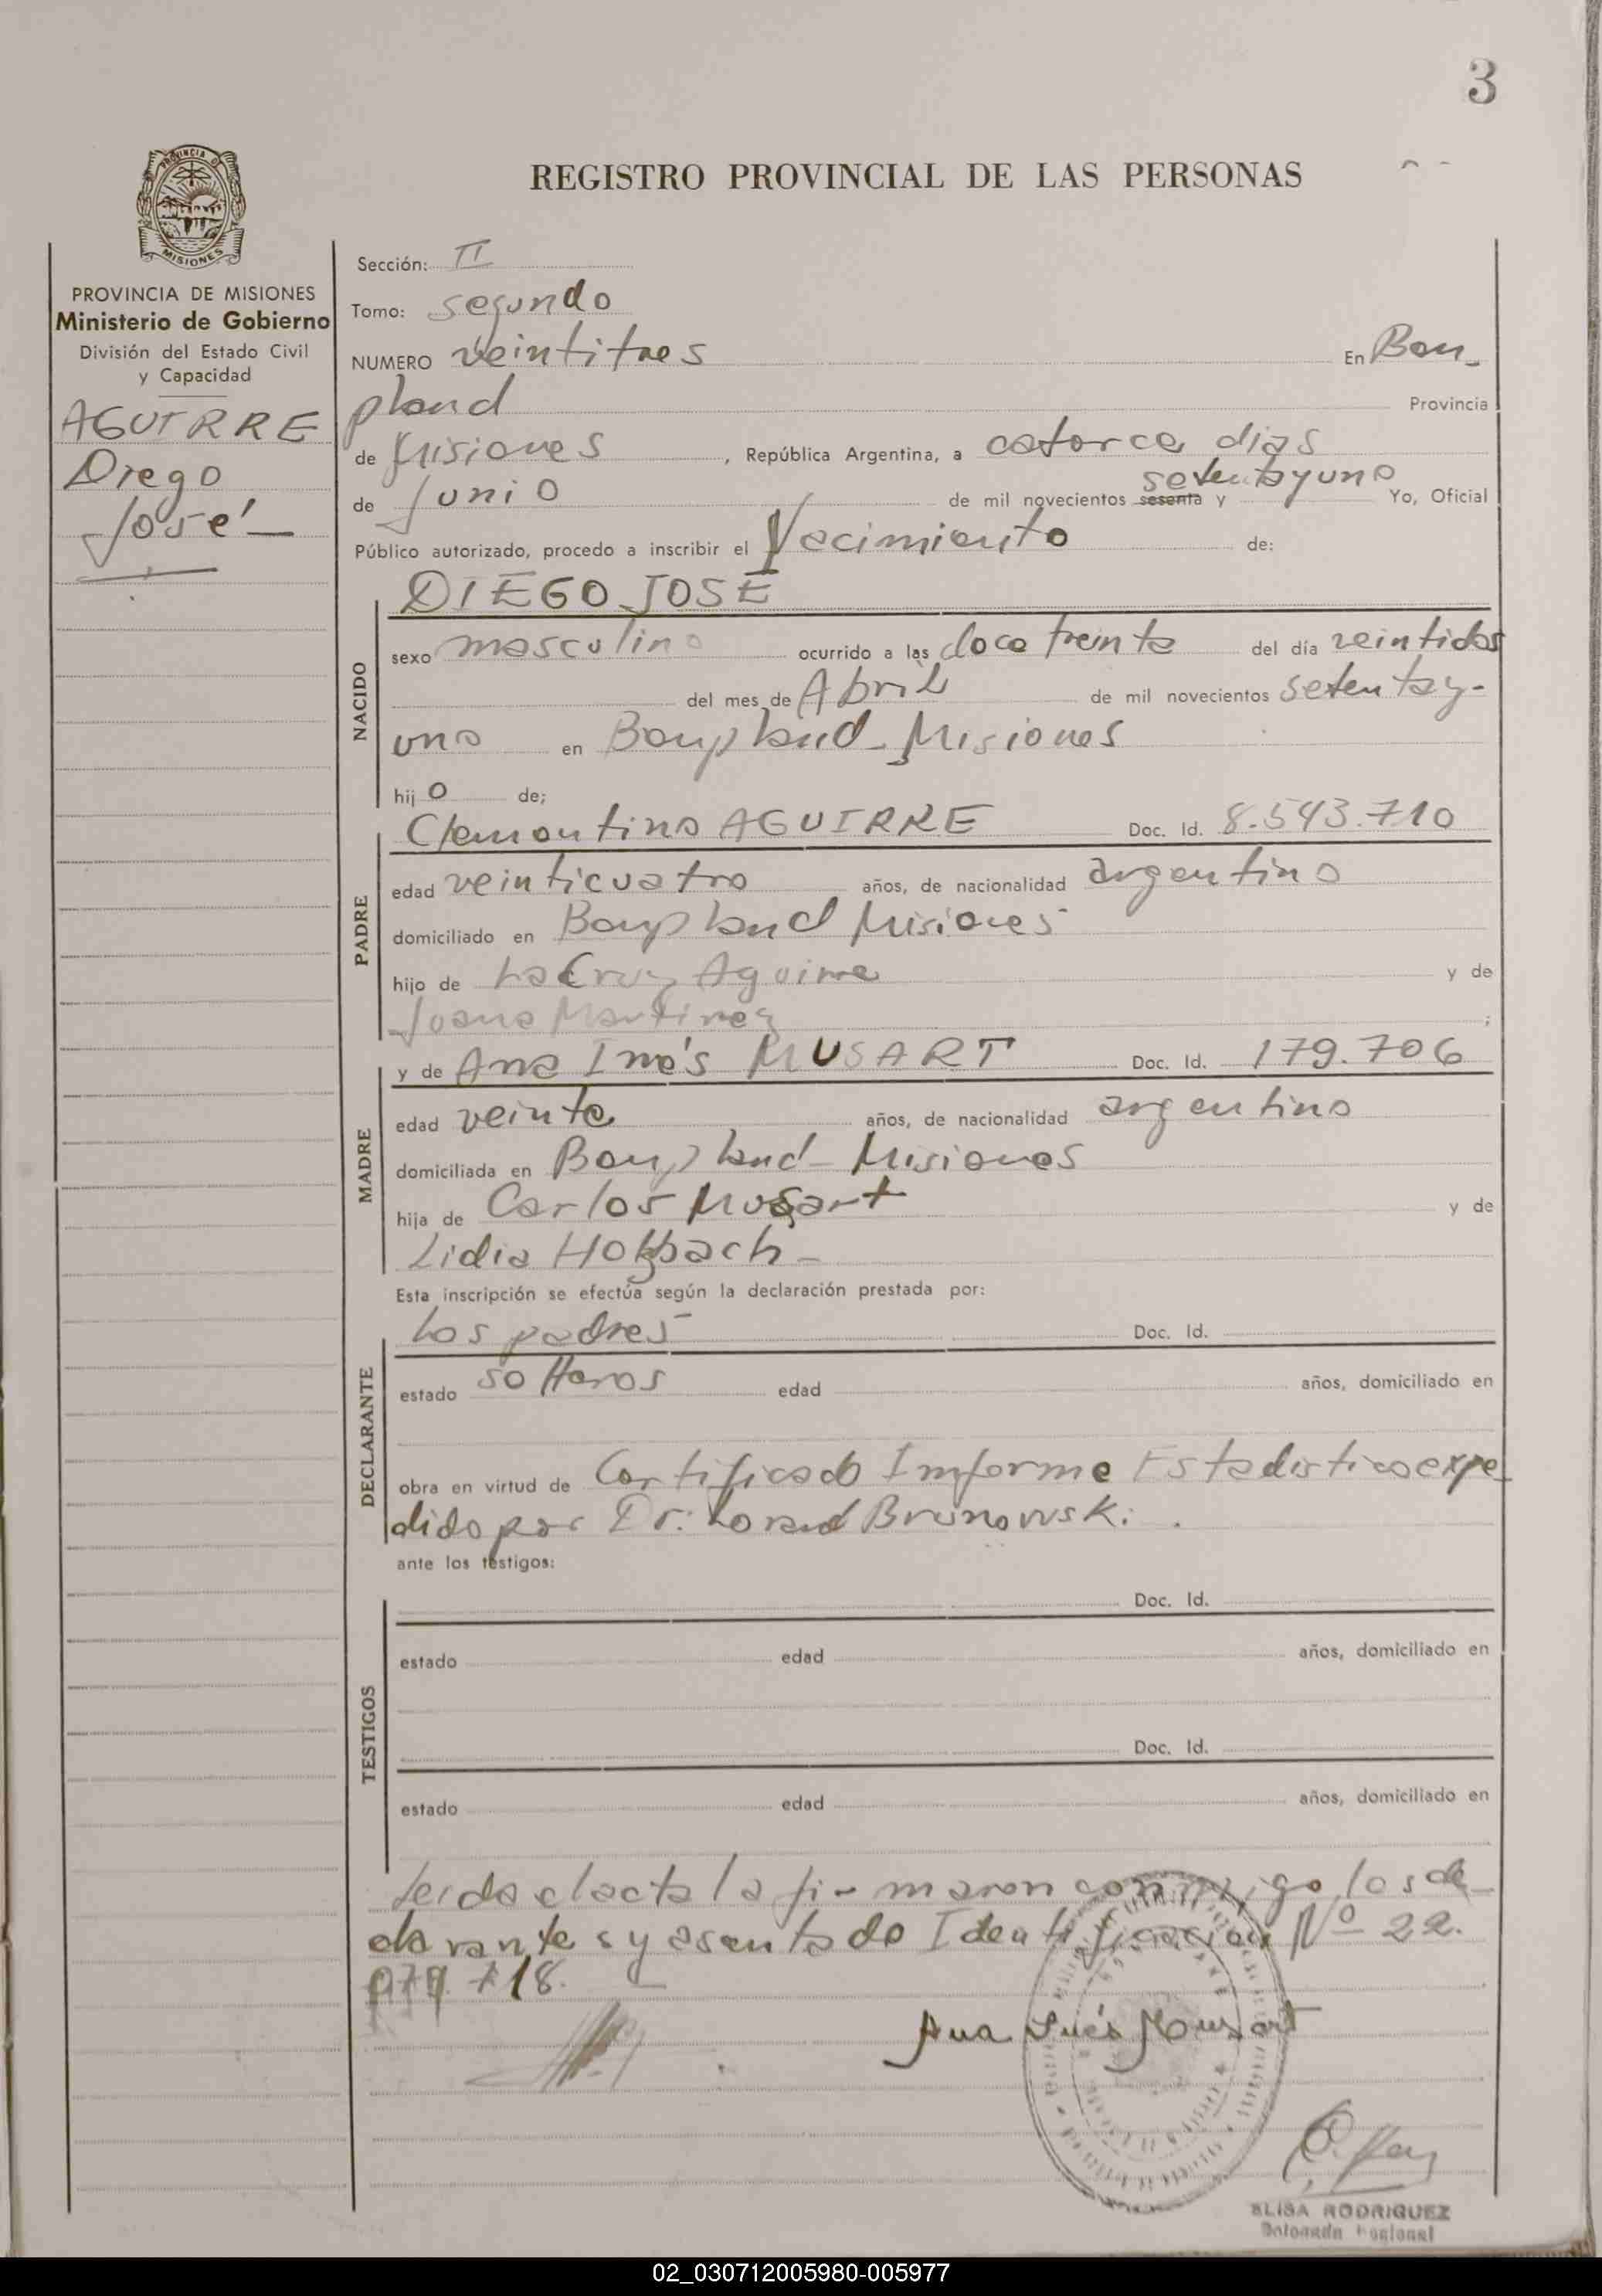 3
PROVINCIA DE
MISIONES
REGISTRO PROVINCIAL DE LAS PERSONAS
PROVINCIA DE MISIONES
Ministerio de Gobierno
División del Estado Civil
y Capacidad
AGUIRRE
Diego
José
Sección: II
Tomo: segundo
NUMERO veintitres En Bon-
pland Provincia
de Misiones, República Argentina, a catorce dias
de Junio de mil novecientos sesenta y setentayuno Yo, Oficial
Público autorizado, procedo a inscribir el Nacimiento de:
NACIDO
DIEGO JOSE
sexo masculino ocurrido a las doce treinta del día veintidos
del mes de Abril de mil novecientos setentay-
uno en Bonpland - Misiones
hijo de;
PADRE
Clementino AGUIRRE Doc. Id. 8.543.710
edad veinticuatro años, de nacionalidad argentino
domiciliado en Bonpland Misiones
hijo de La Cruz Aguirre y de
Juana Martinez ;
MADRE
y de Ana Inés MUSART Doc. Id. 179.706
edad veinte años, de nacionalidad argentino
domiciliada en Bonpland - Misiones
hija de Carlos Musart y de
Lidia
Esta inscripción se efectúa según la declaración prestada por:
DECLARANTE
Los padres Doc. Id.
estado solteros edad años, domiciliado en
obra en virtud de Certificado Informe Estadistico expe
dido por Dr: Brunowski.
ante los testigos:
TESTIGOS
Doc. Id.
estado edad años, domiciliado en
Doc. Id.
estado edad años, domiciliado en
Leida el acta la firmaron conmigo los de
clarantes y asenta do Identificacion Nº 22.
718.
Ana Inés Musart
ELISA RODRIGUEZ
Delegada Regional
02_030712005980-005977